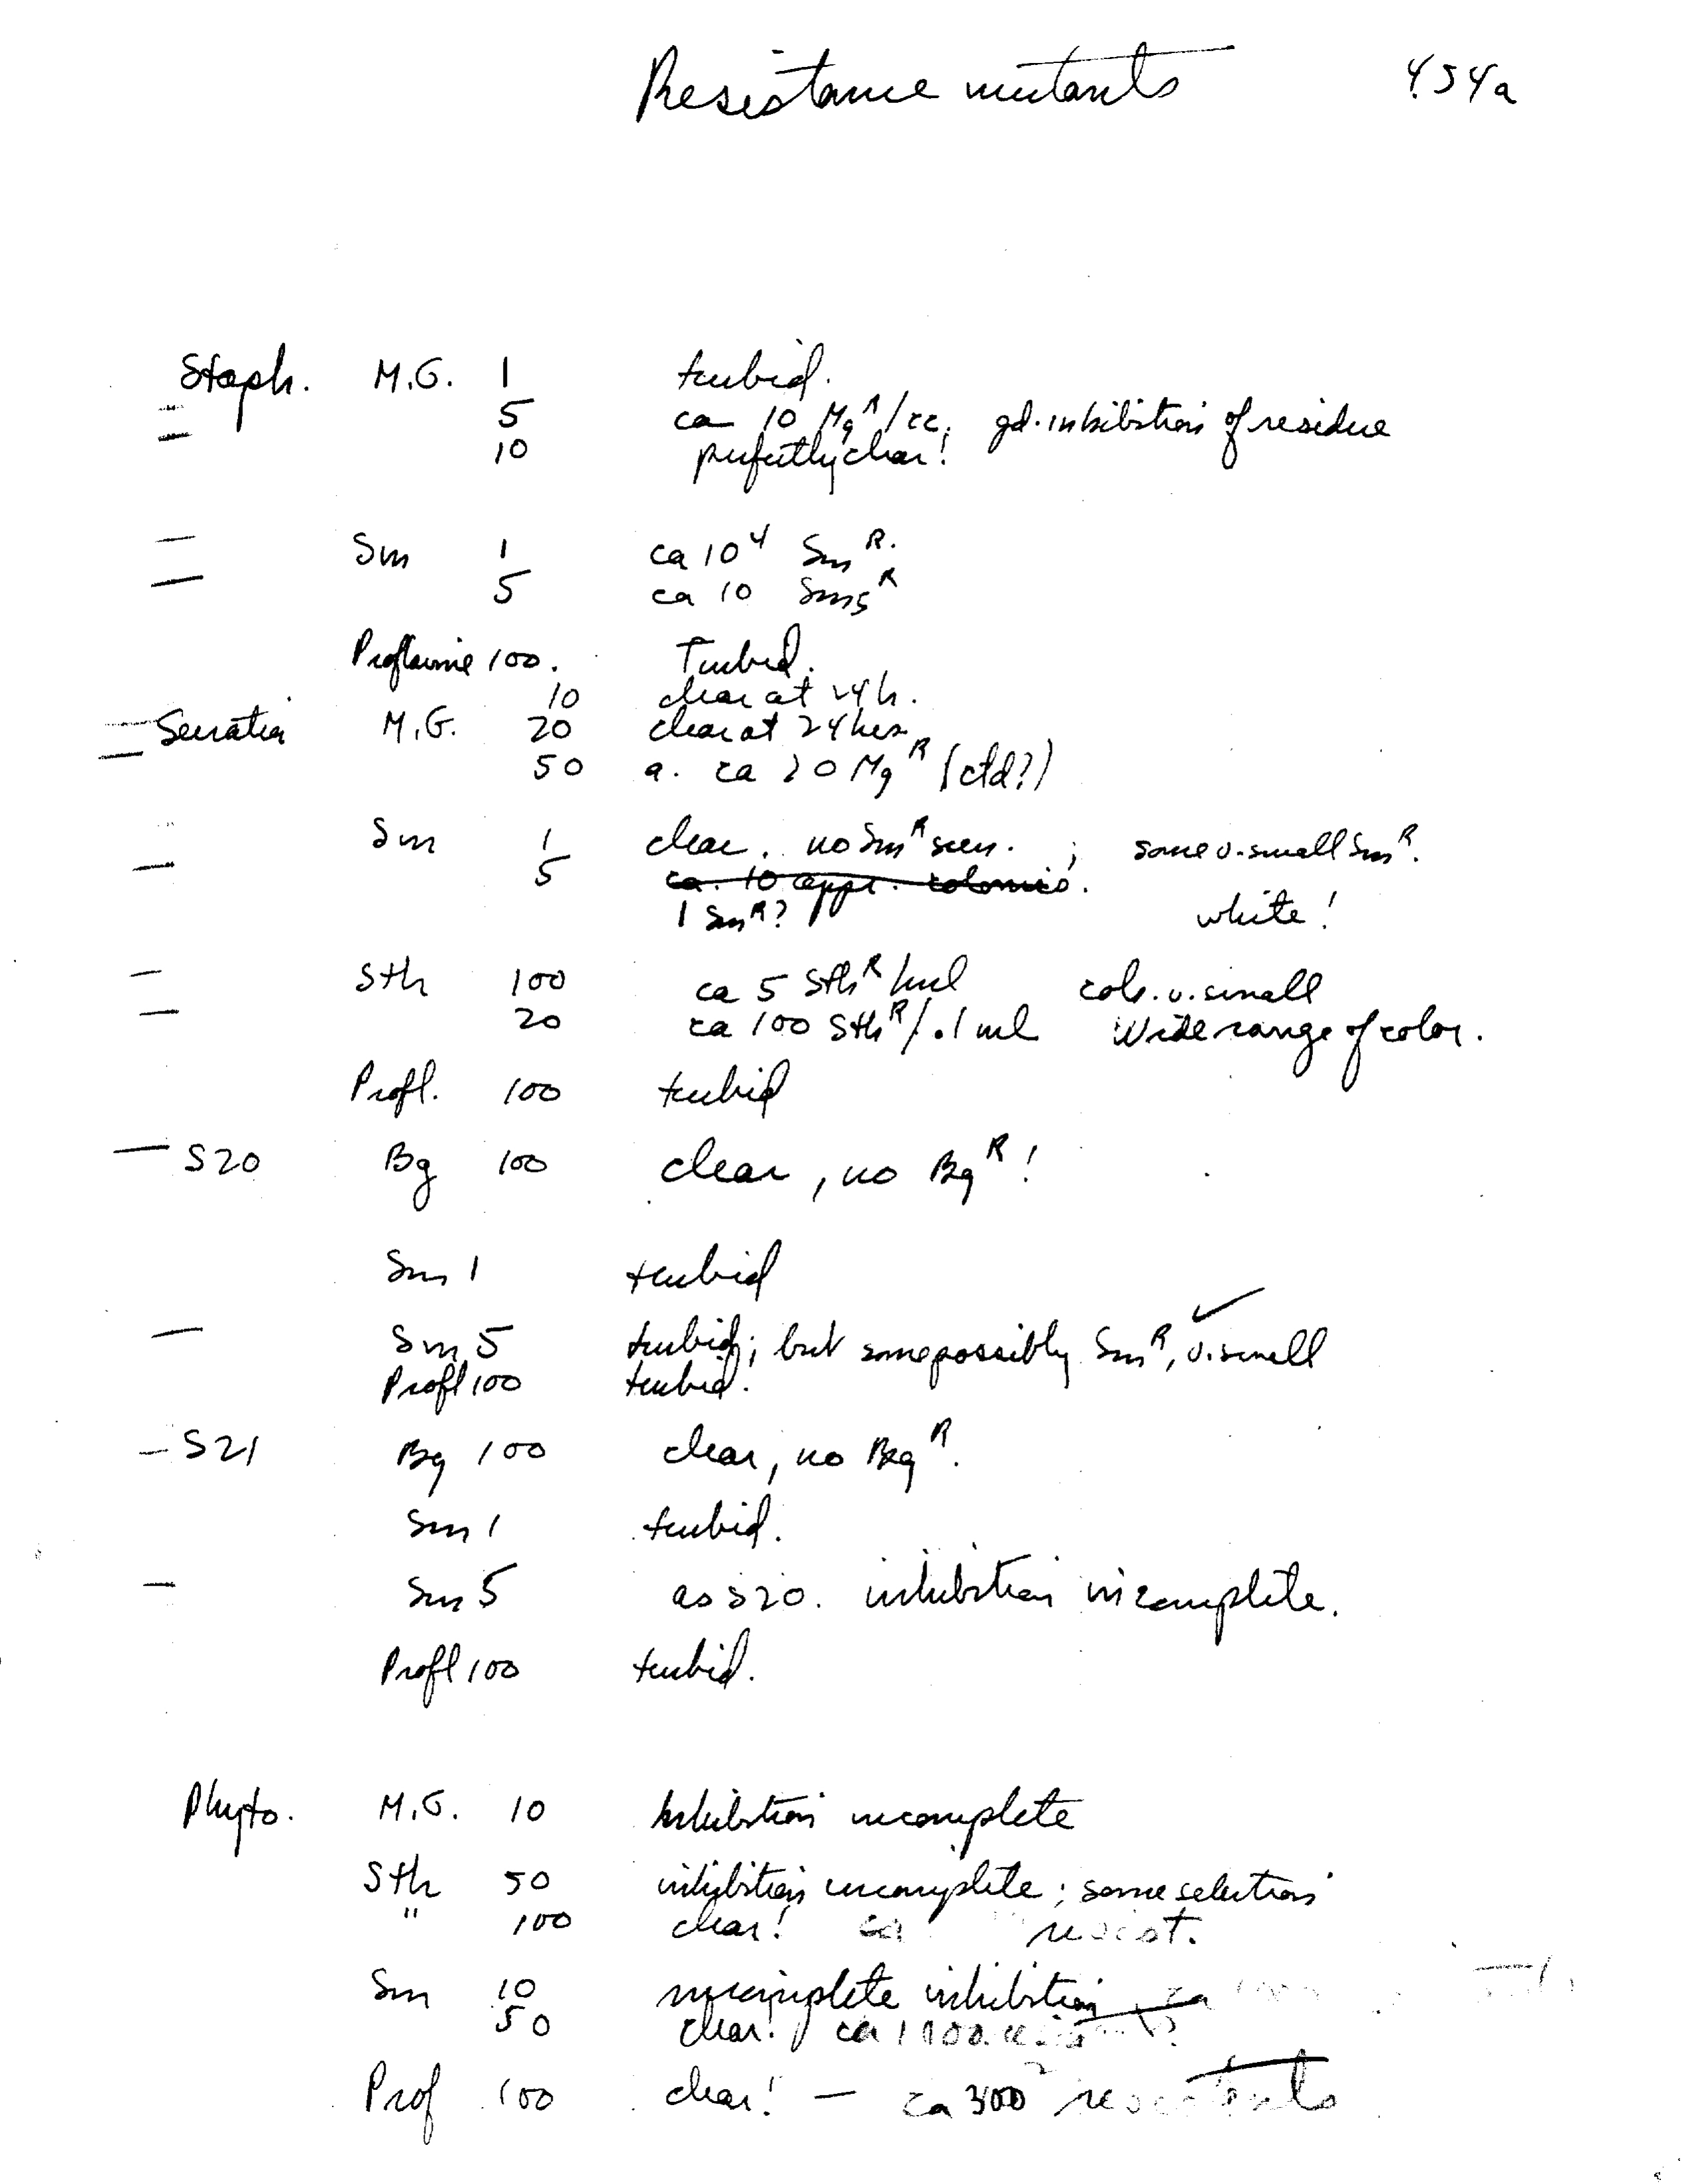 Resistance mutants 454a
Staph. M.G. 1 turbid.
5 ca 10 Mg^R/cc. gd. inhibition of residue
10 perfectly clear!
Sm 1 ca 10^4 Sm^R.
5 ca 10 Sm5^R
Proflavine 100. Turbid.
10 clear at 24 h.
Serratia M.G. 20 clear at 24 hrs.
50 a. ca 20 Mg^R (ctd?)
Sm 1 clear. no Sm^R seen. ; some v. small Sm^R.
5 ca. 10 appr. colonies.
1 Sm^R? white!
Sth 100 ca 5 Sth^R/ml cols. v. small
20 ca 100 Sth^R/.1 ml Wide range of color.
Profl. 100 turbid
S20 Bg 100 clear, no Bg^R!
Sm 1 turbid
Sm 5 turbid; but some possibly Sm^R, v. small ✓
Profl 100 turbid.
S21 Bg 100 clear, no Bg^R.
Sm 1 turbid.
Sm 5 as S20. inhibition incomplete.
Profl 100 turbid.
Phyto. M.G. 10 Inhibition incomplete
Sth 50 inhibition incomplete; some selection
" 100 clear! ca resist.
Sm 10 incomplete inhibition, ca
50 clear! ca
Prof 100 clear! — ca 300 resistants